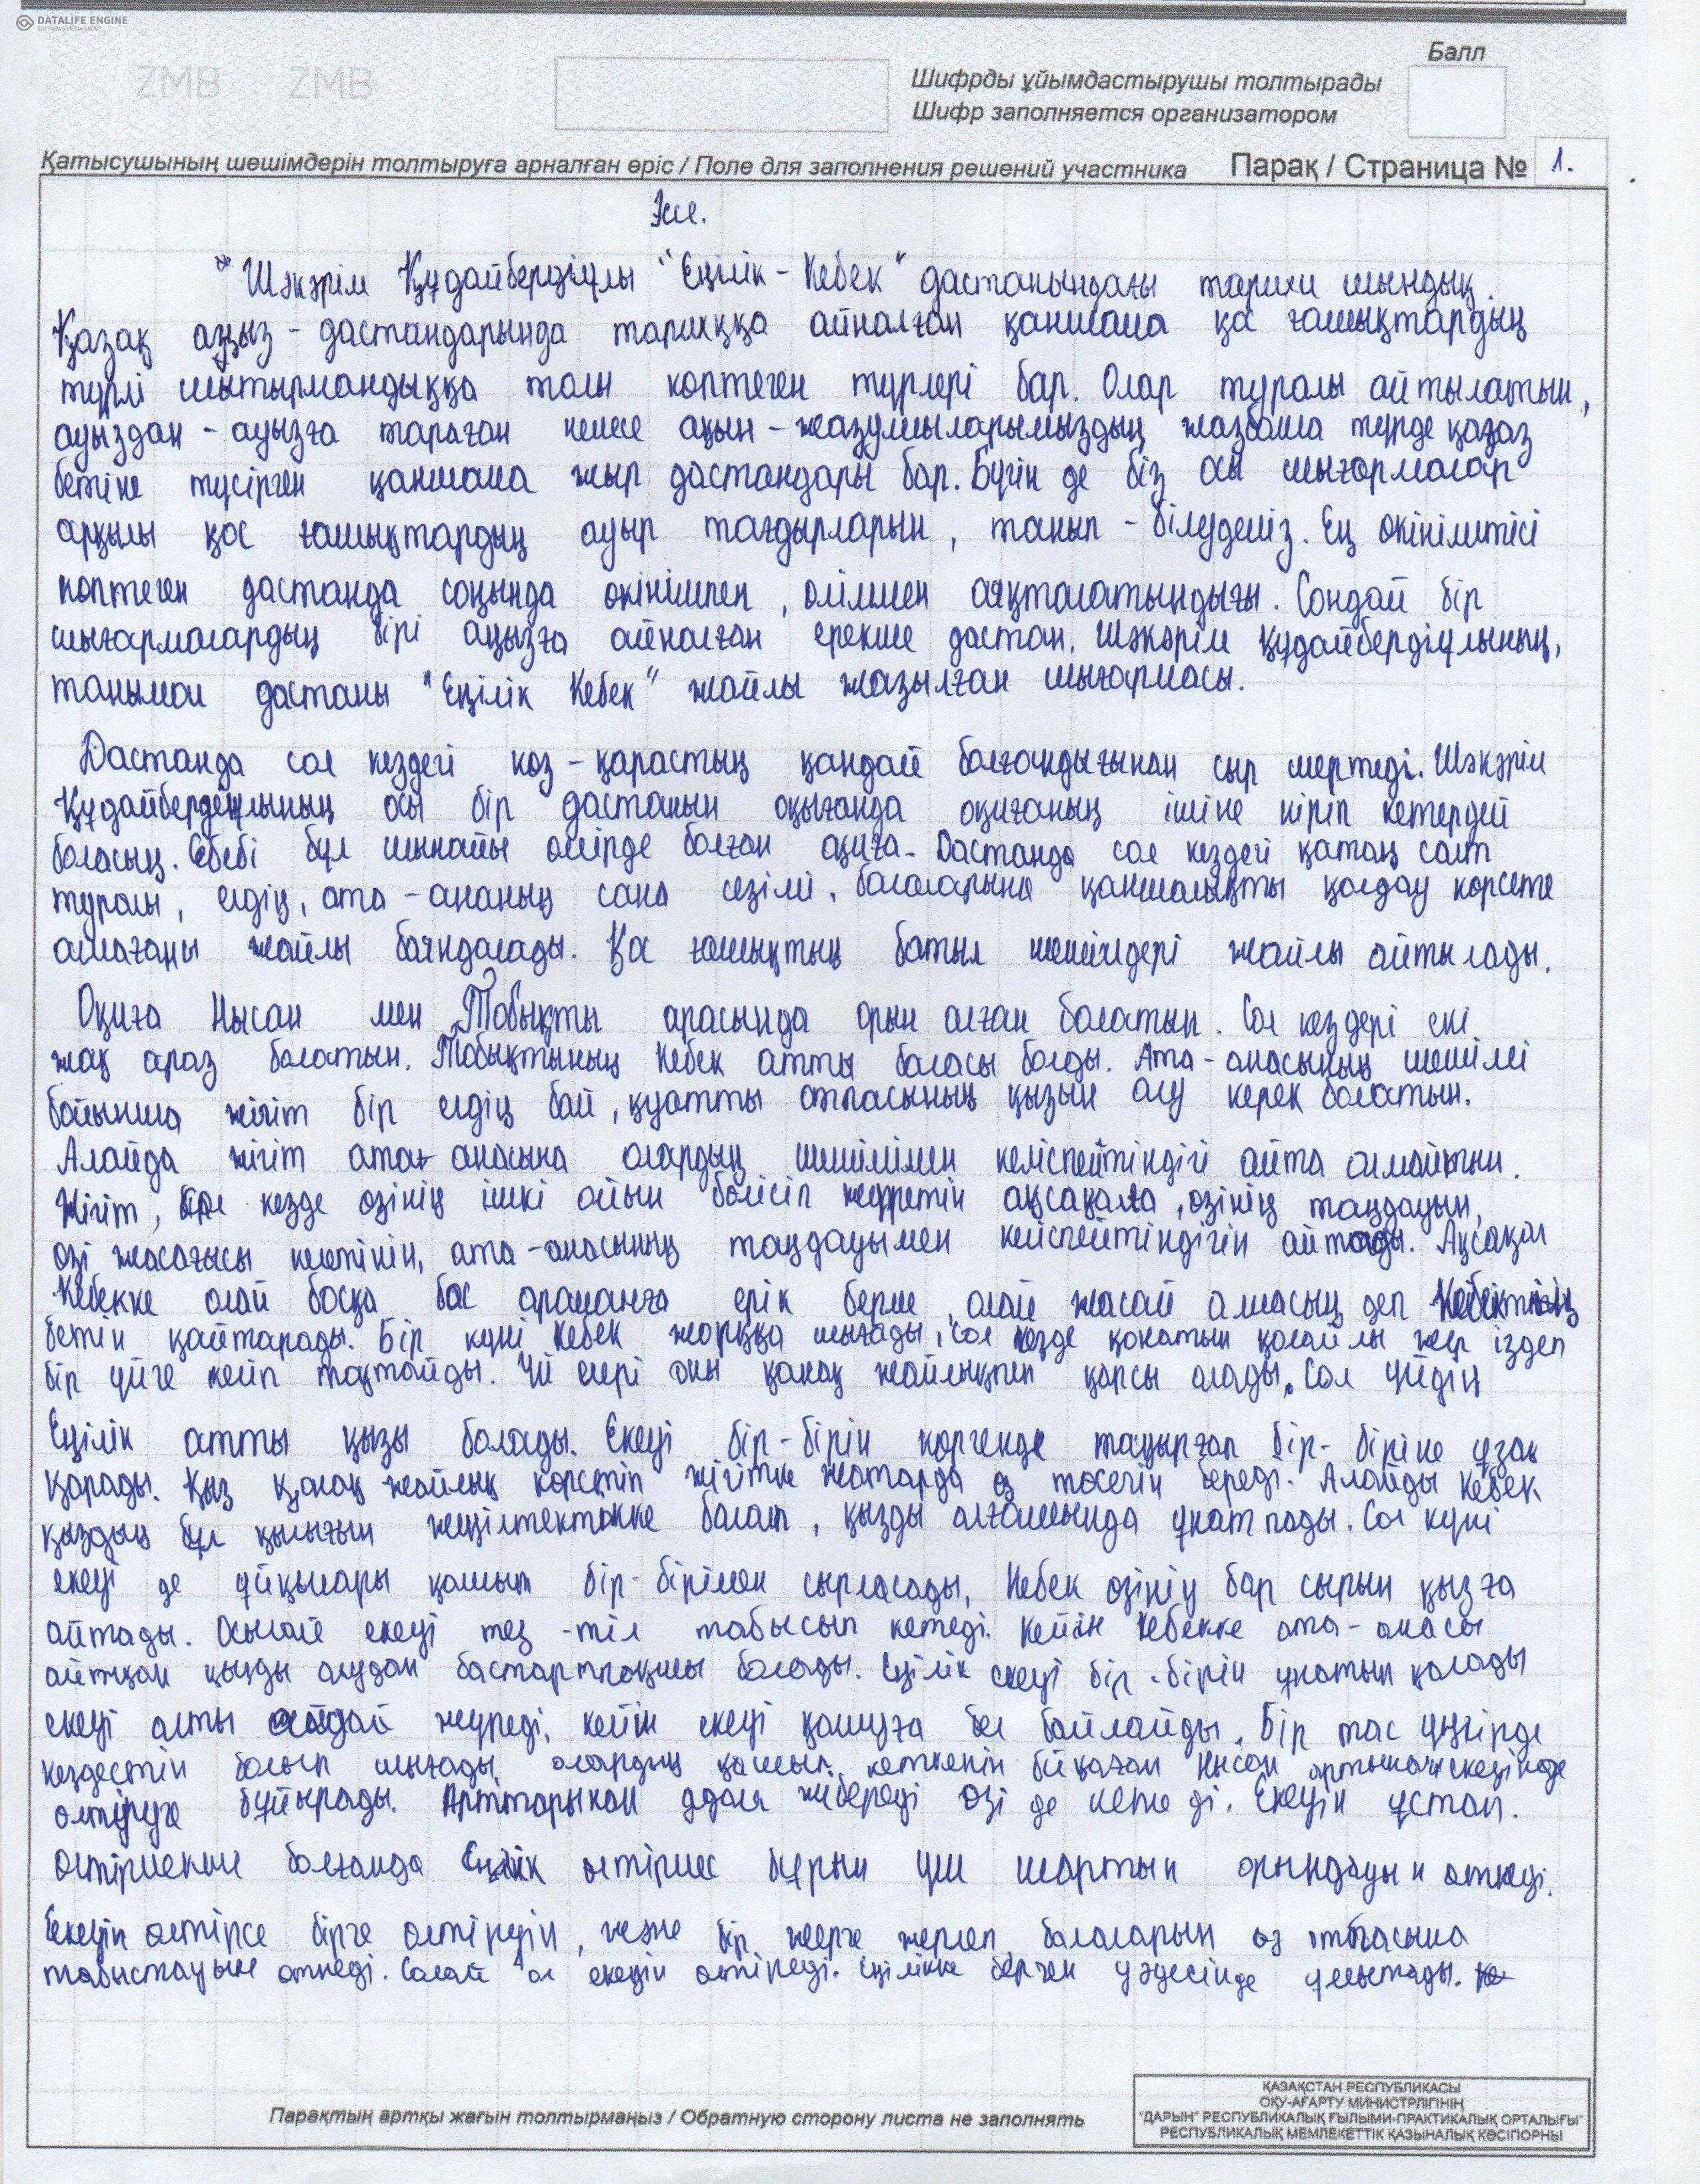 DATALIFE ENGINE
ZMB ZMB
Балл
Шифрды ұйымдастырушы толтырады
Шифр заполняется организатором
Қатысушының шешімдерін толтыруға арналған өріс / Поле для заполнения решений участника Парақ / Страница № 1.
Эссе.
"Шәкәрім Құдайбердіұлы "Еңілік - Кебек" дастанындағы тарихи шындық.
Қазақ аңыз - дастандарында тарихқа айналған қаншама қос ғашықтардың
түрлі шытырмандыққа толы көптеген түрлері бар. Олар туралы айтылатын,
ауыздан - ауызға тараған немесе ақын - жазушыларымыздың жазбаша түрде қағаз
бетіне түсірген қаншама жыр дастандары бар. Бүгін де біз осы шығармалар
арқылы қос ғашықтардың ауыр тағдырларын, танып - білудеміз. Ең өкініштісі
көптеген дастанда соңында өкінішпен, өліммен аяқталатындығы. Сондай бір
шығармалардың бірі аңызға айналған ерекше дастан. Шәкәрім Құдайбердіұлының,
танымал дастаны "Еңілік Кебек" жайлы жазылған шығармасы.
Дастанда сол кездегі көз - қарастың қандай болғандығынан сыр шертеді. Шәкәрім
Құдайбердіұлының осы бір дастанын оқығанда оқиғаның ішіне кіріп кетердей
боласың. Себебі бұл шынайы өмірде болған оқиға. Дастанда сол кездегі қатаң салт
туралы, елдің, ата - ананың сана сезімі, балаларына қаншалықты қолдау көрсете
алмағаны жайлы баяндалады. Қос ғашықтың батыл шешімдері жайлы айтылады.
Оқиға Нысан мен Тобықты арасында орын алған болатын. Сол кездері екі
жақ араз болатын. Тобықтының Кебек атты баласы болды. Ата - анасының шешімі
бойынша жігіт бір елдің бай, қуатты отбасының қызын алу керек болатын.
Алайда жігіт ата - анасына олардың шешімімен келіспейтіндігі айта алмайтын.
Жігіт, сол кезде өзінің ішкі ойын бөлісіп жүретін ақсақалға, өзінің таңдауын,
өзі жасағысы келетінін, ата - анасының таңдауымен келіспейтіндігін айтады. Ақсақал
Кебекке олай босқа бос арманға ерік берме, олай жасай алмасың деп Кебектің
бетін қайтарады. Бір күні Кебек жорыққа шығады, сол кезде қонатын қолайлы жер іздеп
бір үйге келіп тоқтайды. Үй иелері оны қонақ жайлықпен қарсы алады. Сол үйдің
Еңілік атты қызы болады. Екеуі бір - бірін көргенде таңырғап бір - біріне ұзақ
қарады. Қыз қонақ жайлық көрсетіп жігітке жатарда өз төсегін береді. Алайды Кебек
қыздың бұл қылығын жеңілтектікке балап, қызды алғашында ұнатпады. Сол күні
екеуі де ұйқылары қашып бір - бірімен сырласады, Кебек өзінің бар сырын қызға
айтады. Осылай екеуі тез - тіл табысып кетеді. Кейін Кебекке ата - анасы
айтқан қызды алудан бастартпақшы болады. Еңілік екеуі бір - бірін ұнатып қалады
екеуі алты айдай жүреді, кейін екеуі қашуға бел байлайды. Бір тас үңгірде
кездестін болып шығады, олардың қашып кеткенін байқаған Нысан артынан екеуінде
өлтіруге бұйырады. Арттарынан адам жібереді өзі де кетеді. Екеуін ұстап.
өлтірмекші болғанда Еңілік өлтірмес бұрын үш шартын орындауын өтінеді.
Екеуін өлтірсе бірге өлтіруін, және бір жерге жерлеп, балаларын өз отбасына
табыстауын өтінеді. Солай ол екеуін өлтіреді. Еңілікке берген уәдесінде ұмытады.
Парақтың артқы жағын толтырмаңыз / Обратную сторону листа не заполнять
ҚАЗАҚСТАН РЕСПУБЛИКАСЫ
ОҚУ-АҒАРТУ МИНИСТРЛІГІНІҢ
"ДАРЫН" РЕСПУБЛИКАЛЫҚ ҒЫЛЫМИ-ПРАКТИКАЛЫҚ ОРТАЛЫҒЫ"
РЕСПУБЛИКАЛЫҚ МЕМЛЕКЕТТІК ҚАЗЫНАЛЫҚ КӘСІПОРНЫ